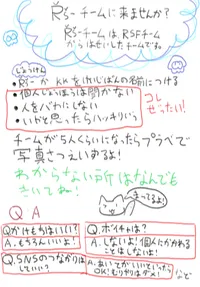 R's-チームに来ませんか?
R's-チームは、RSFチーム
からはせいしたチームです。
じょうけん
・R's-か をけいじばんの名前につける
・個人じょうほうは聞かない
・人をバカにしない
・いやだと思ったらハッキリいう
コレ
ぜったい!
チームが5人くらいになったらプラベで
写真さつえいするよ!
わからない所はなんでも
きいてね!
まってるよ!
Q A
Q.かけもちはいい?
A.もちろんいいよ!
Q.ボイチャは?
A.しないよ!個人にかかわる
ことはしないよ!
Q.SNSのつながりは
していい?
A.あいてがいいといったら
OK!むりやりはダメ!
など